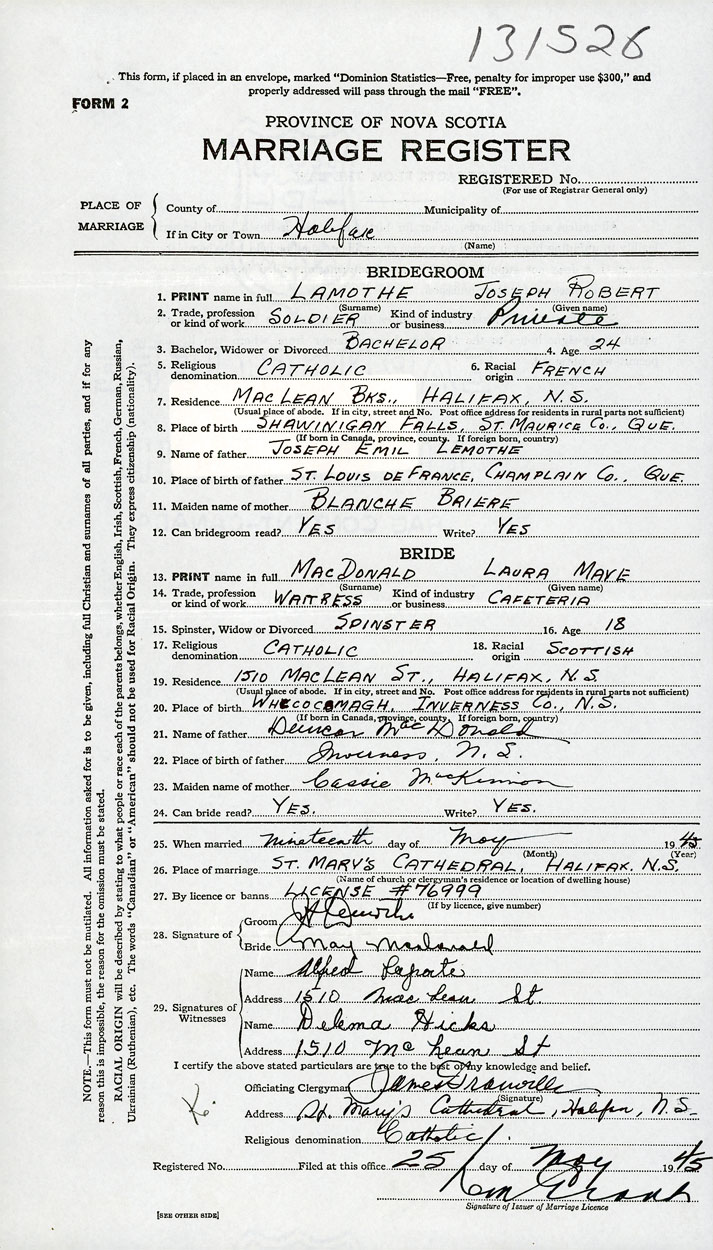 131526
This form, if placed in an envelope, marked "Dominion Statistics—Free, penalty for improper use $300," and
properly addressed will pass through the mail "FREE".
FORM 2
PROVINCE OF NOVA SCOTIA
MARRIAGE REGISTER
REGISTERED No.
(For use of Registrar General only)
PLACE OF MARRIAGE
County of Municipality of
If in City or Town Halifax
(Name)
BRIDEGROOM
1. PRINT name in full LAMOTHE JOSEPH ROBERT
(Surname) (Given name)
2. Trade, profession or kind of work SOLDIER Kind of industry or business Private
3. Bachelor, Widower or Divorced BACHELOR 4. Age 24
5. Religious denomination CATHOLIC 6. Racial origin FRENCH
7. Residence MACLEAN BKS., HALIFAX, N.S.
(Usual place of abode. If in city, street and No. Post office address for residents in rural parts not sufficient)
8. Place of birth SHAWINIGAN FALLS, ST. MAURICE CO., QUE.
(If born in Canada, province, county. If foreign born, country)
9. Name of father JOSEPH EMIL LEMOTHE
10. Place of birth of father ST. LOUIS DE FRANCE, CHAMPLAIN CO., QUE.
11. Maiden name of mother BLANCHE BRIERE
12. Can bridegroom read? YES Write? YES
BRIDE
13. PRINT name in full MACDONALD LAURA MAYE
(Surname) (Given name)
14. Trade, profession or kind of work WAITRESS Kind of industry or business CAFETERIA
15. Spinster, Widow or Divorced SPINSTER 16. Age 18
17. Religious denomination CATHOLIC 18. Racial origin SCOTTISH
19. Residence 1510 MACLEAN ST., HALIFAX, N.S.
(Usual place of abode. If in city, street and No. Post office address for residents in rural parts not sufficient)
20. Place of birth WHYCOCOMAGH, INVERNESS CO., N.S.
(If born in Canada, province, county. If foreign born, country)
21. Name of father Duncan MacDonald
22. Place of birth of father Inverness, N.S.
23. Maiden name of mother Cassie McKinnon
24. Can bride read? YES. Write? YES.
25. When married nineteenth day of May 1945
(Month) (Year)
26. Place of marriage ST. MARY'S CATHEDRAL, HALIFAX, N.S.
(Name of church or clergyman's residence or location of dwelling house)
27. By licence or banns LICENSE #76999
(If by licence, give number)
28. Signature of
Groom
Bride May Macdonald
29. Signatures of Witnesses
Name Alfred Laporte
Address 1510 MacLean St.
Name Delema Hicks
Address 1510 McLean St
I certify the above stated particulars are true to the best of my knowledge and belief.
Officiating Clergyman James Granville
(Signature)
Address St. Mary's Cathedral, Halifax, N.S.
Religious denomination Catholic
Registered No. Filed at this office 25 day of May 1945
Signature of Issuer of Marriage Licence
[SEE OTHER SIDE]
NOTE.—This form must not be mutilated. All information asked for is to be given, including full Christian and surnames of all parties, and if for any
reason this is impossible, the reason for the omission must be stated.
RACIAL ORIGIN will be described by stating to what people or race each of the parents belongs, whether English, Irish, Scottish, French, German, Russian,
Ukrainian (Ruthenian), etc. The words "Canadian" or "American" should not be used for Racial Origin. They express citizenship (nationality).